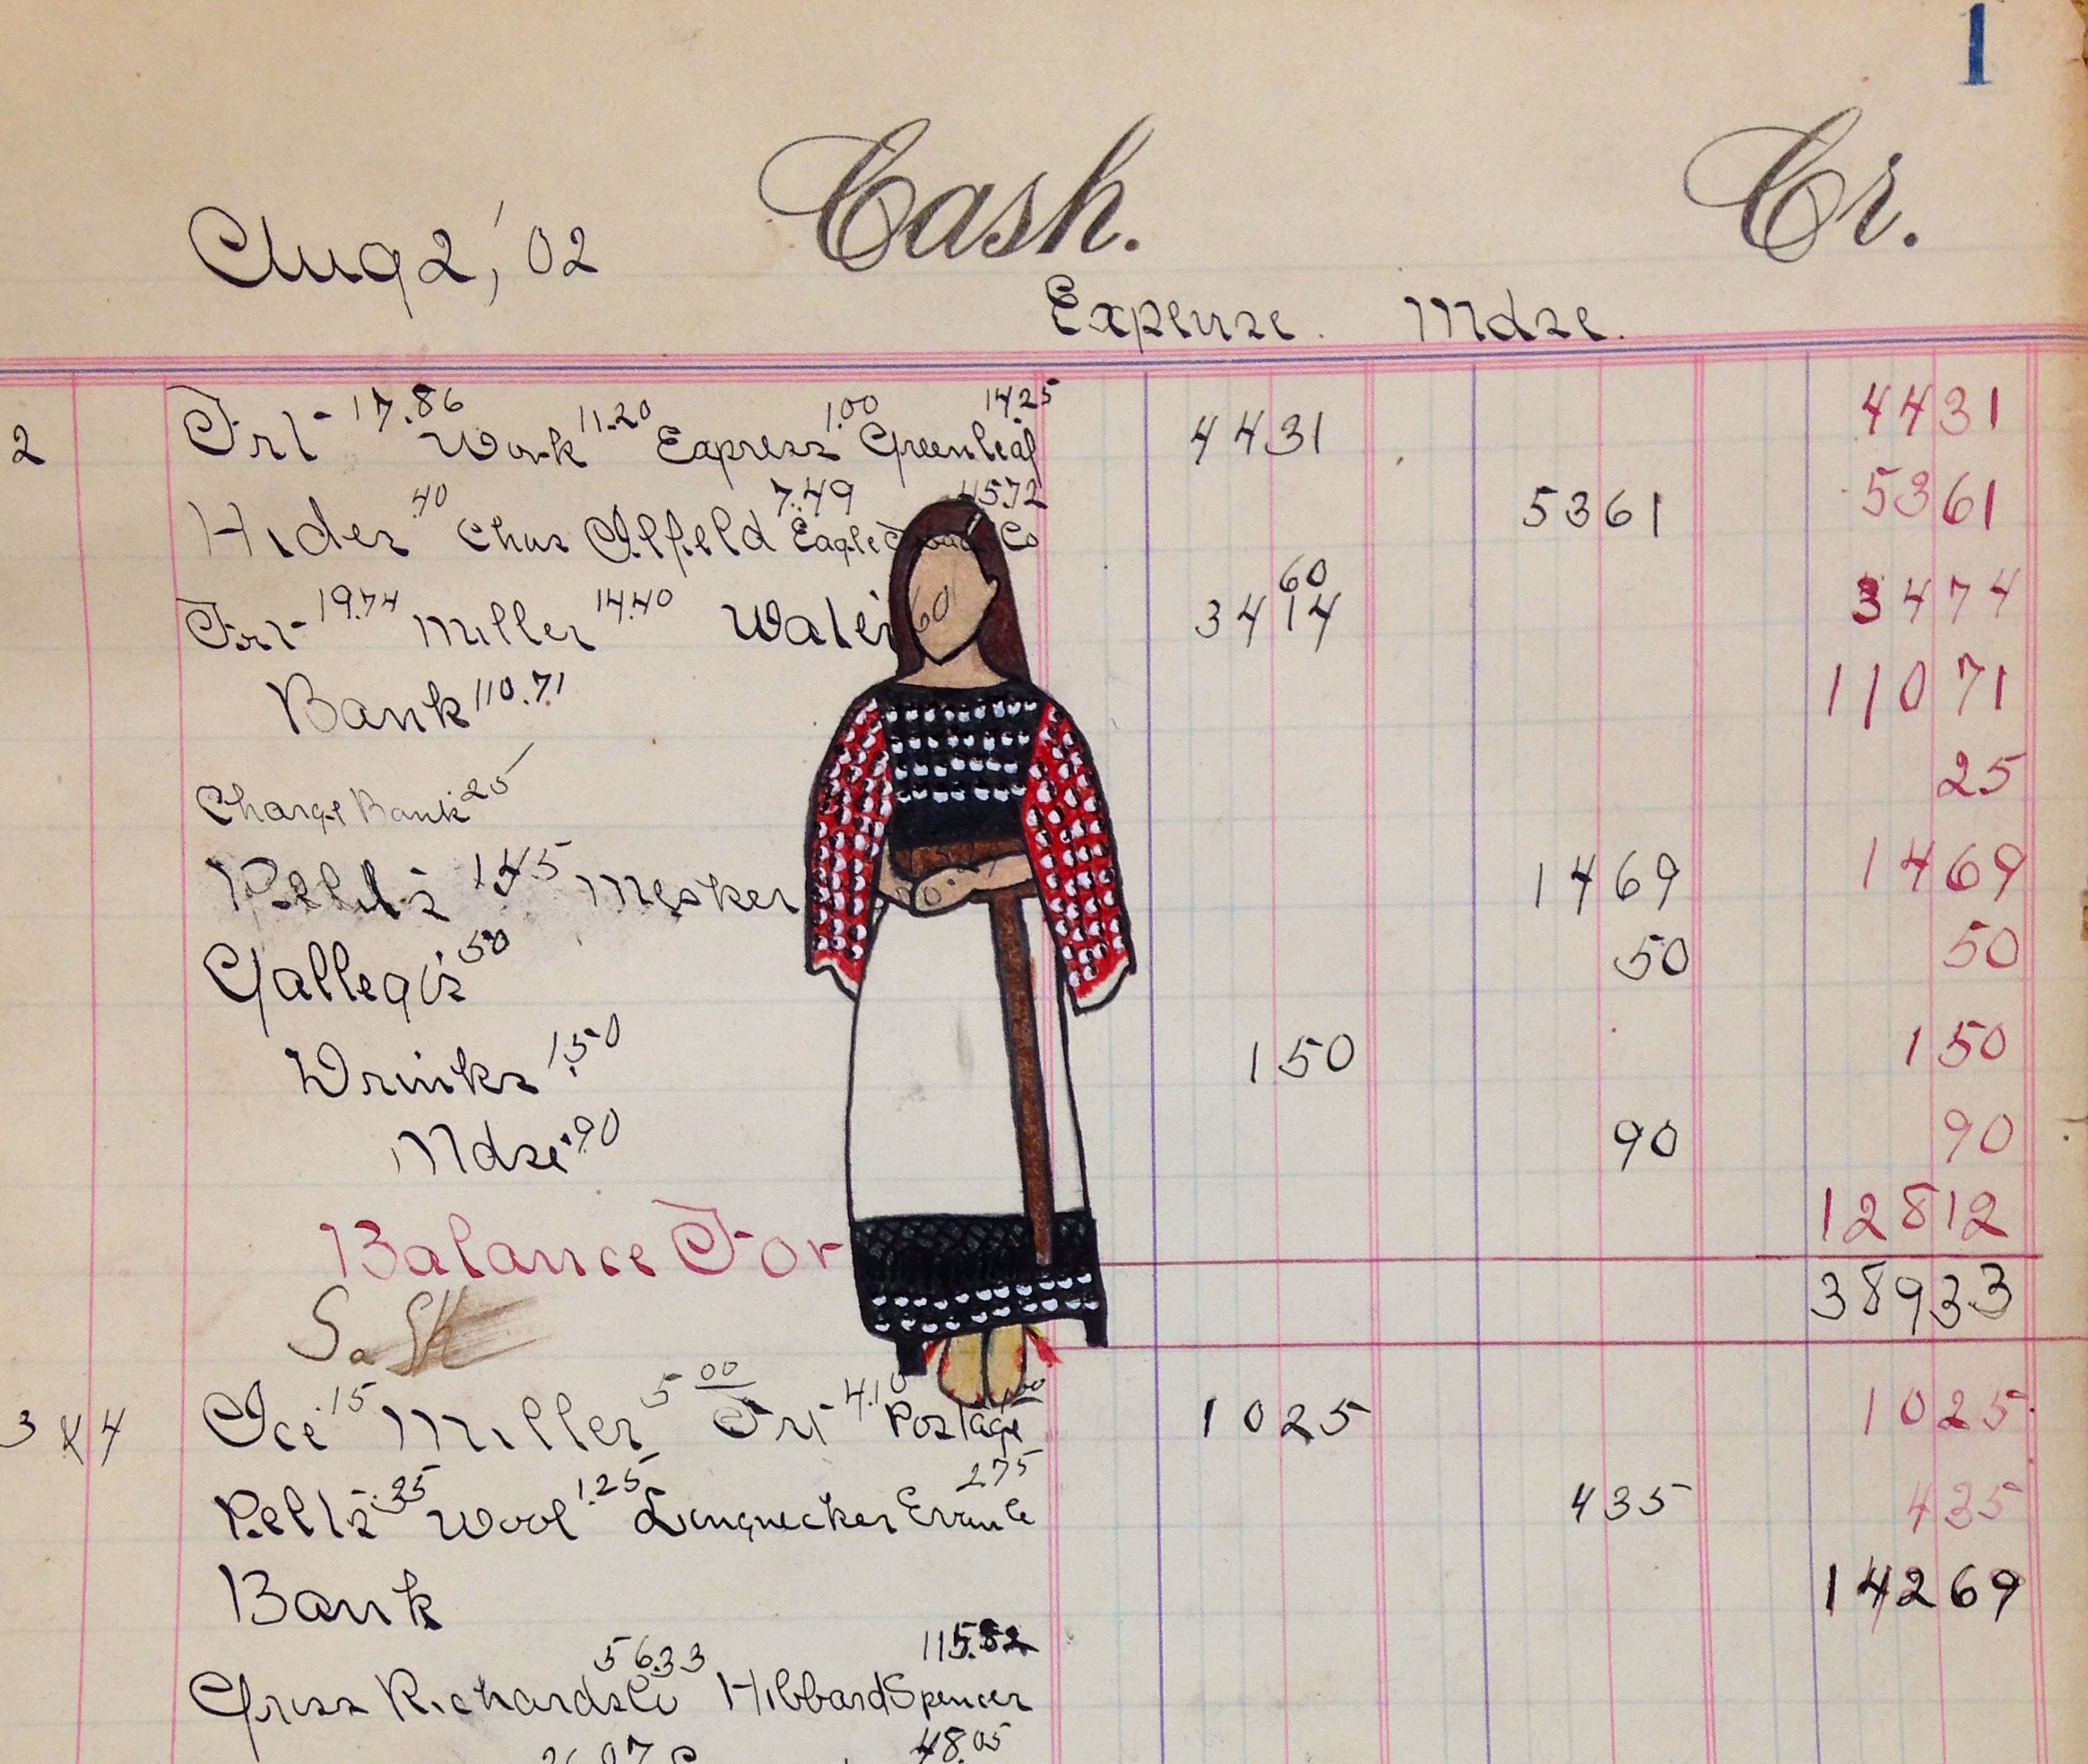 1
Cash. Cr.
Aug 2, '02
Expense. Mdse.
2 Frt 17.86 Work 11.20 Express 1.00 Greenleaf 14.25 4431 4431
Hides .40 Chas Ilfeld 7.49 Eagle Co 45.72 5361 5361
Frt 19.74 Miller 14.40 Water 60 34 14 60 3474
Bank 110.71 11071
Charge Bank 25 25
Pelts 145 Mesker 1469 1469
Gallegos 50 50 50
Drinks 1.50 150 150
Mdse .90 90 90
Balance For 12812
38933
3 & 4 Ice .15 Miller 5 00 Frt 4.10 Postage 1025 1025
Pelts .35 Wool 1.25 Longnecker Evan Co 2.75 435 435
Bank 14269
Gross Richards Co 56.33 Hibbard Spencer 115.82
26.07 48.05